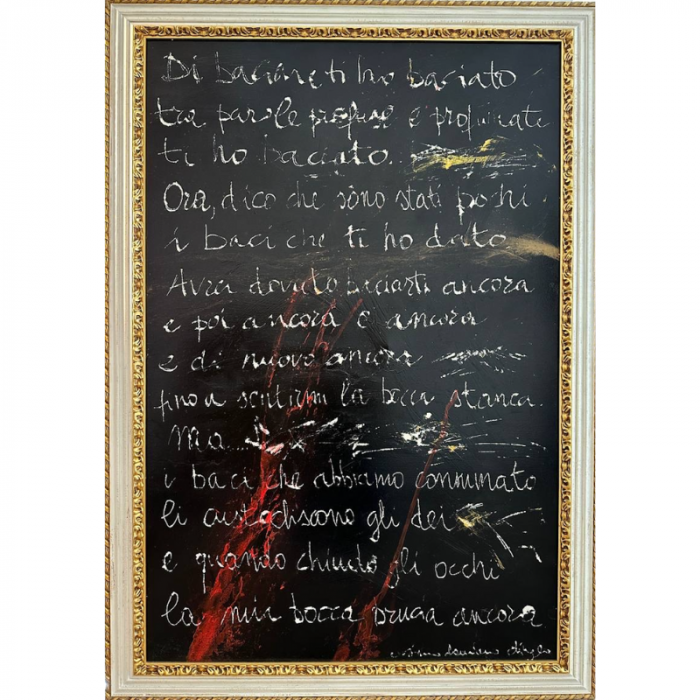 Di baciare ti ho baciato
tra parole profuse e profumate
ti ho baciato.
Ora, dico che sono stati pochi
i baci che ti ho dato
Avrei dovuto baciarti ancora
e poi ancora e ancora
e di nuovo ancora
fino a sentirmi la bocca stanca.
Ma...
i baci che abbiamo consumato
li custodiscono gli dei
e quando chiudo gli occhi
la mia bocca brucia ancora